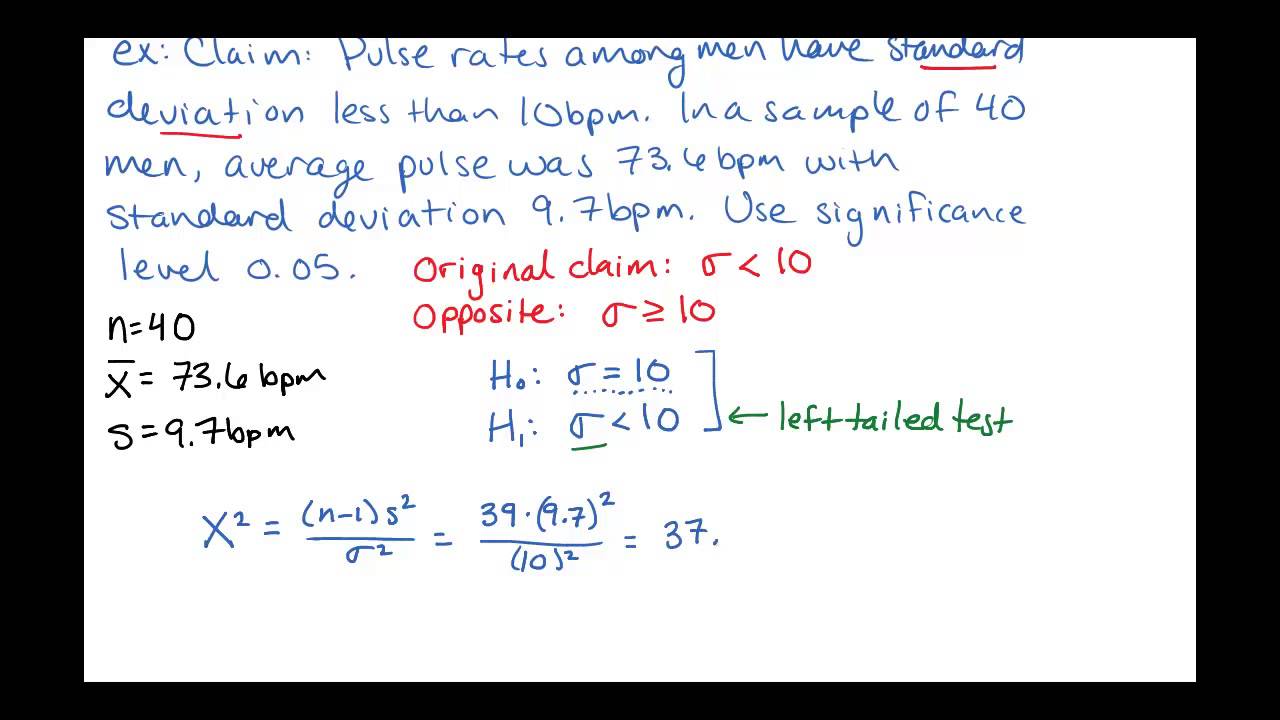 ex: Claim: Pulse rates among men have standard
deviation less than 10bpm. In a sample of 40
men, average pulse was 73.6bpm with
standard deviation 9.7bpm. Use significance
level 0.05.
Original claim: σ < 10
Opposite: σ ≥ 10
n=40
x̄ = 73.6 bpm
s = 9.7bpm
H₀: σ = 10
H₁: σ < 10
← left tailed test
X² = (n-1)s²/σ² = 39·(9.7)²/(10)² = 37.